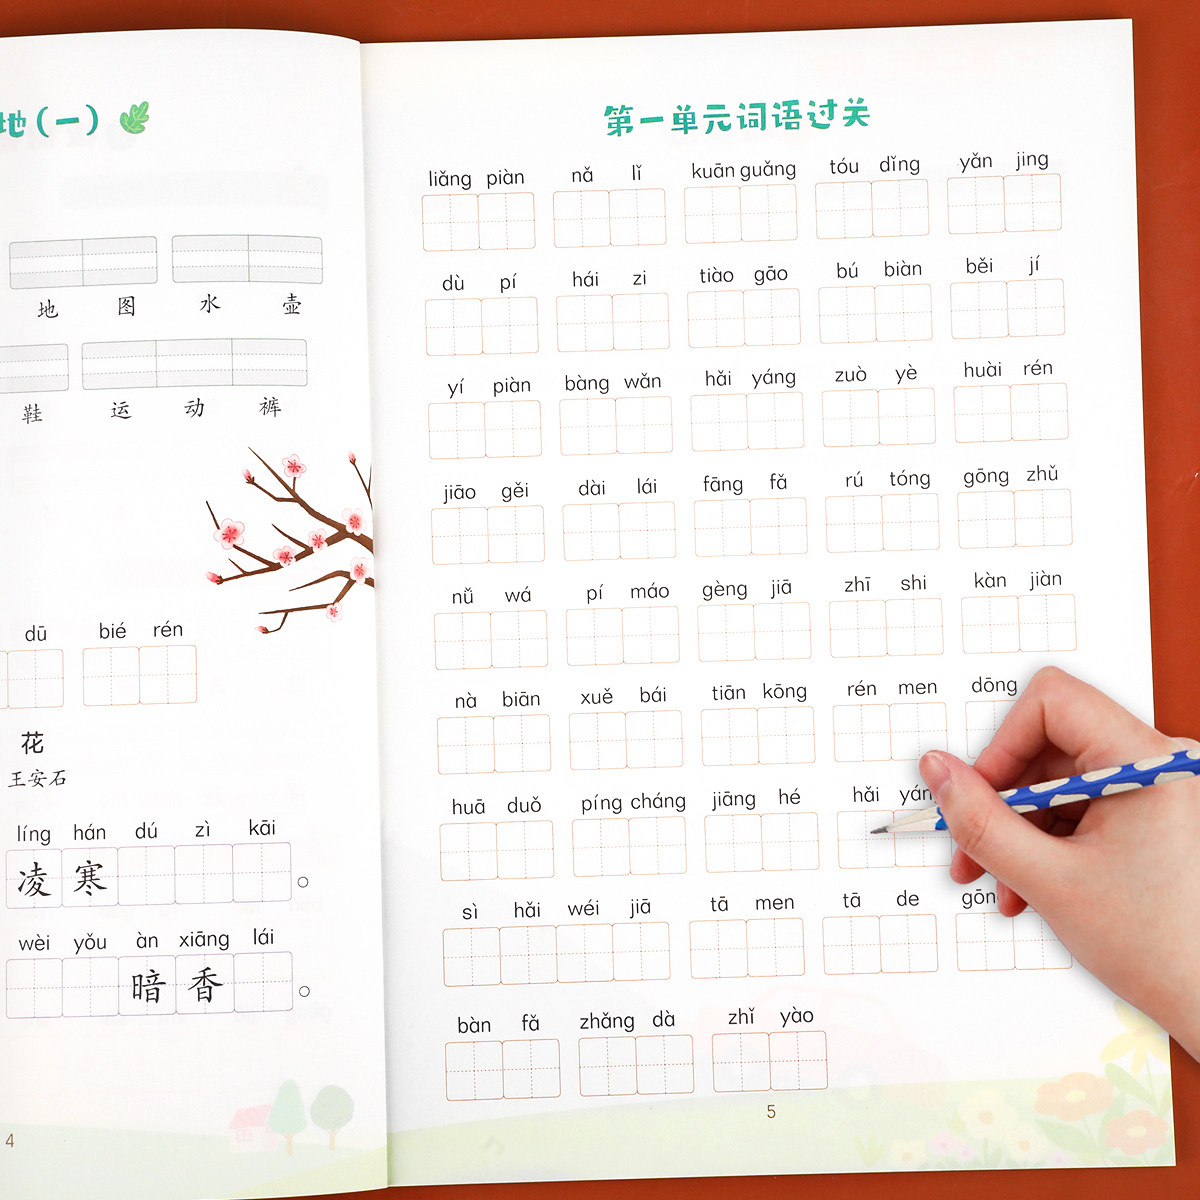 地(一)
地 图 水 壶
鞋 运 动 裤
dū bié rén
花
王安石
líng hán dú zì kāi
凌 寒 。
wèi yǒu àn xiāng lái
暗 香 。
4
第一单元词语过关
liǎng piàn nǎ lǐ kuān guǎng tóu dǐng yǎn jing
dù pí hái zi tiào gāo bú biàn běi jí
yí piàn bàng wǎn hǎi yáng zuò yè huài rén
jiāo gěi dài lái fāng fǎ rú tóng gōng zhǔ
nǚ wá pí máo gèng jiā zhī shi kàn jiàn
nà biān xuě bái tiān kōng rén men dōng
huā duǒ píng cháng jiāng hé hǎi yán
sì hǎi wéi jiā tā men tā de gōn
bàn fǎ zhǎng dà zhǐ yào
5